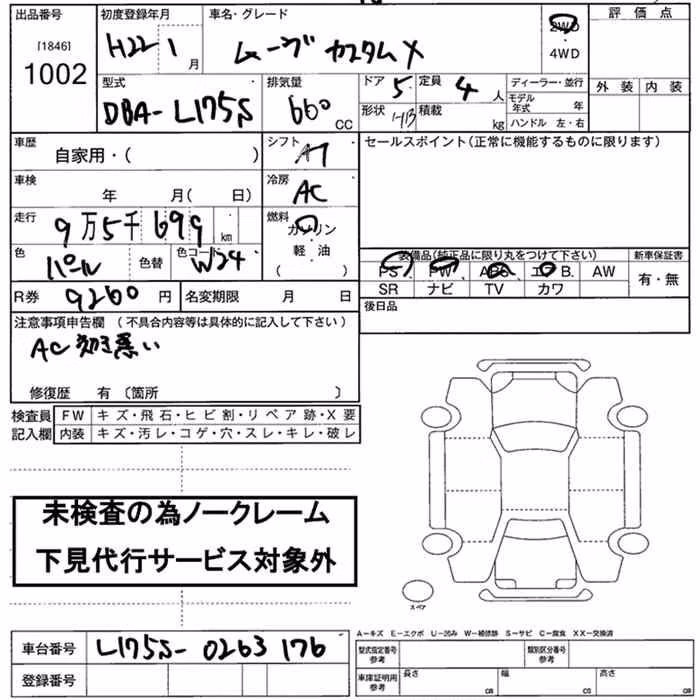 出品番号 初度登録年月 車名・グレード 評 価 点
[1846] H22 1 月 ムーヴ カスタムX 2WD
1002 ・
4WD
型式 排気量 ドア 5 定員 4 人 ディーラー・並行 外 装 内 装
DBA-L175S 660 CC 形状 H/B 積載 kg モデル年式 年
ハンドル 左・右
車歴 シフト AT セールスポイント(正常に機能するものに限ります)
自家用・( )
車検 冷房 AC
年 月( 日)
走行 燃料
9万5千699 km ガソリン
軽・油
( )
色 色替 色コード 装備品(純正品に限り丸をつけて下さい) 新車保証書
パール W24 PS PW ABS エアB. AW 有・無
SR ナビ TV カワ
R券 9260 円 名変期限 月 日 後日品
注意事項申告欄 (不具合内容等は具体的に記入して下さい)
AC 効き悪い
修復歴 有 〔箇所 〕
検査員 FW キズ・飛石・ヒビ割・リペア跡・X要
記入欄 内装 キズ・汚レ・コゲ・穴・スレ・キレ・破レ
未検査の為ノークレーム
下見代行サービス対象外
スペア
A-キズ E-エクボ U-凹み W-補修跡 S-サビ C-腐食 XX-交換済
車台番号 L175S-0263176 型式指定番号 参考 類別区分番号 参考
登録番号 車庫証明用 参考 長さ cm 幅 cm 高さ cm